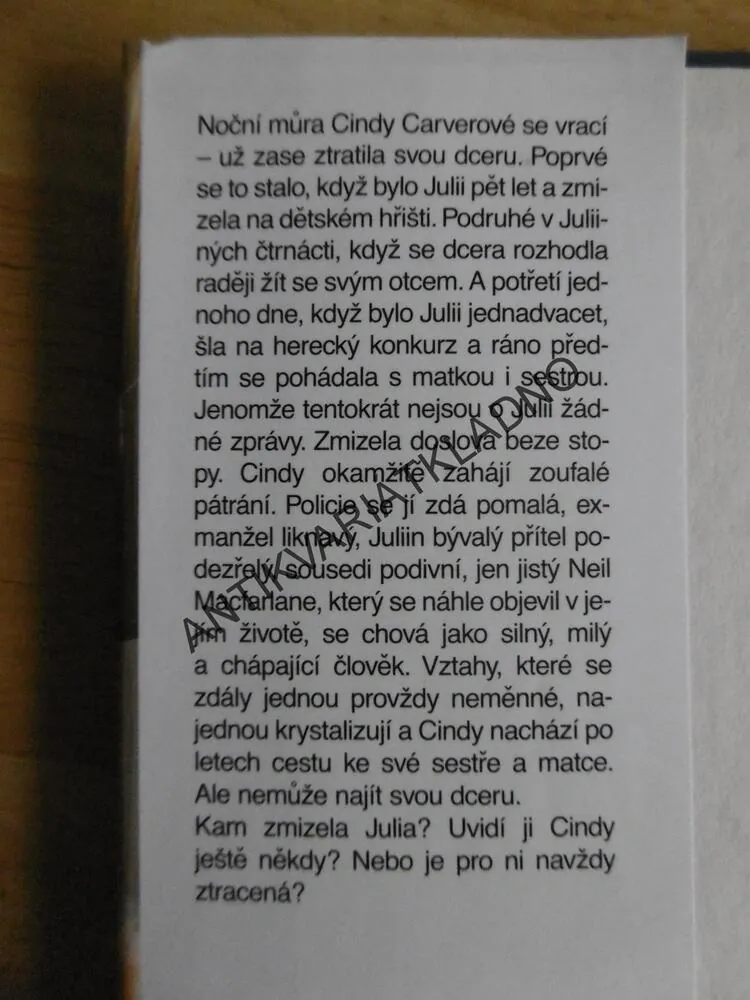 Noční můra Cindy Carverové se vrací
– už zase ztratila svou dceru. Poprvé
se to stalo, když bylo Julii pět let a zmi-
zela na dětském hřišti. Podruhé v Julii-
ných čtrnácti, když se dcera rozhodla
raději žít se svým otcem. A potřetí jed-
noho dne, když bylo Julii jednadvacet,
šla na herecký konkurz a ráno před-
tím se pohádala s matkou i sestrou.
Jenomže tentokrát nejsou o Julii žád-
né zprávy. Zmizela doslova beze sto-
py. Cindy okamžitě zahájí zoufalé
pátrání. Policie se jí zdá pomalá, ex-
manžel liknavý, Juliin bývalý přítel po-
dezřelý, sousedi podivní, jen jistý Neil
Macfarlane, který se náhle objevil v je-
jím životě, se chová jako silný, milý
a chápající člověk. Vztahy, které se
zdály jednou provždy neměnné, na-
jednou krystalizují a Cindy nachází po
letech cestu ke své sestře a matce.
Ale nemůže najít svou dceru.
Kam zmizela Julia? Uvidí ji Cindy
ještě někdy? Nebo je pro ni navždy
ztracená?
ANTIKVARIATKLADNO